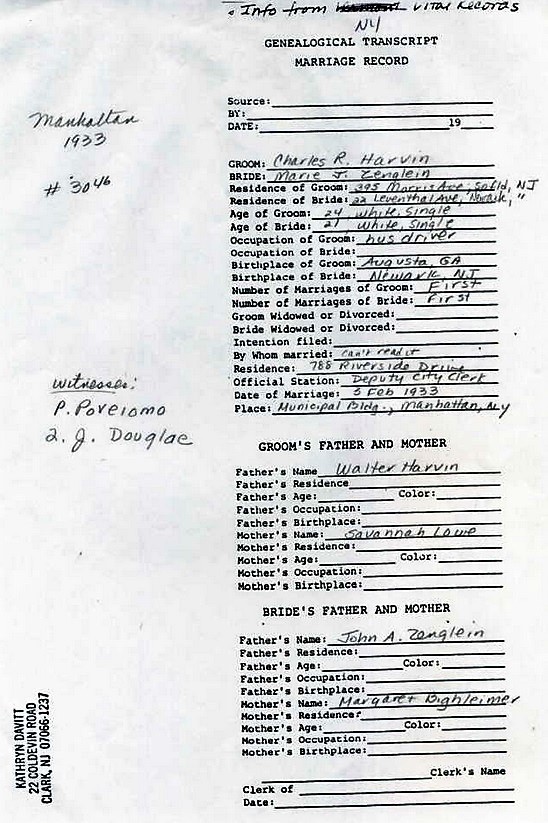 • Info from NY Vital Records
GENEALOGICAL TRANSCRIPT
MARRIAGE RECORD
Manhattan
1933
# 3046
Source:
BY:
DATE: 19
GROOM: Charles R. Harvin
BRIDE: Marie J. Zenglein
Residence of Groom: 395 Morris Ave, Spfld, NJ
Residence of Bride: 22 Leventhal Ave, Newark, "
Age of Groom: 24, White, Single
Age of Bride: 21, White, Single
Occupation of Groom: bus driver
Occupation of Bride:
Birthplace of Groom: Augusta, GA
Birthplace of Bride: Newark NJ
Number of Marriages of Groom: First
Number of Marriages of Bride: First
Groom Widowed or Divorced:
Bride Widowed or Divorced:
Intention filed:
By Whom married: can't read it
Residence: 788 Riverside Drive
Official Station: Deputy City Clerk
Date of Marriage: 3 Feb 1933
Place: Municipal Bldg., Manhattan, NY
Witnesses:
P. Poveromo
2. J. Douglae
GROOM'S FATHER AND MOTHER
Father's Name Walter Harvin
Father's Residence
Father's Age: Color:
Father's Occupation:
Father's Birthplace:
Mother's Name: Savannah Lowe
Mother's Residence:
Mother's Age: Color:
Mother's Occupation:
Mother's Birthplace:
BRIDE'S FATHER AND MOTHER
Father's Name: John A. Zenglein
Father's Residence:
Father's Age: Color:
Father's Occupation:
Father's Birthplace:
Mother's Name: Margaret Dighleimer
Mother's Residence:
Mother's Age: Color:
Mother's Occupation:
Mother's Birthplace:
Clerk's Name
Clerk of
Date:
KATHRYN DAVITT
22 COLDEVIN ROAD
CLARK, NJ 07066-1237